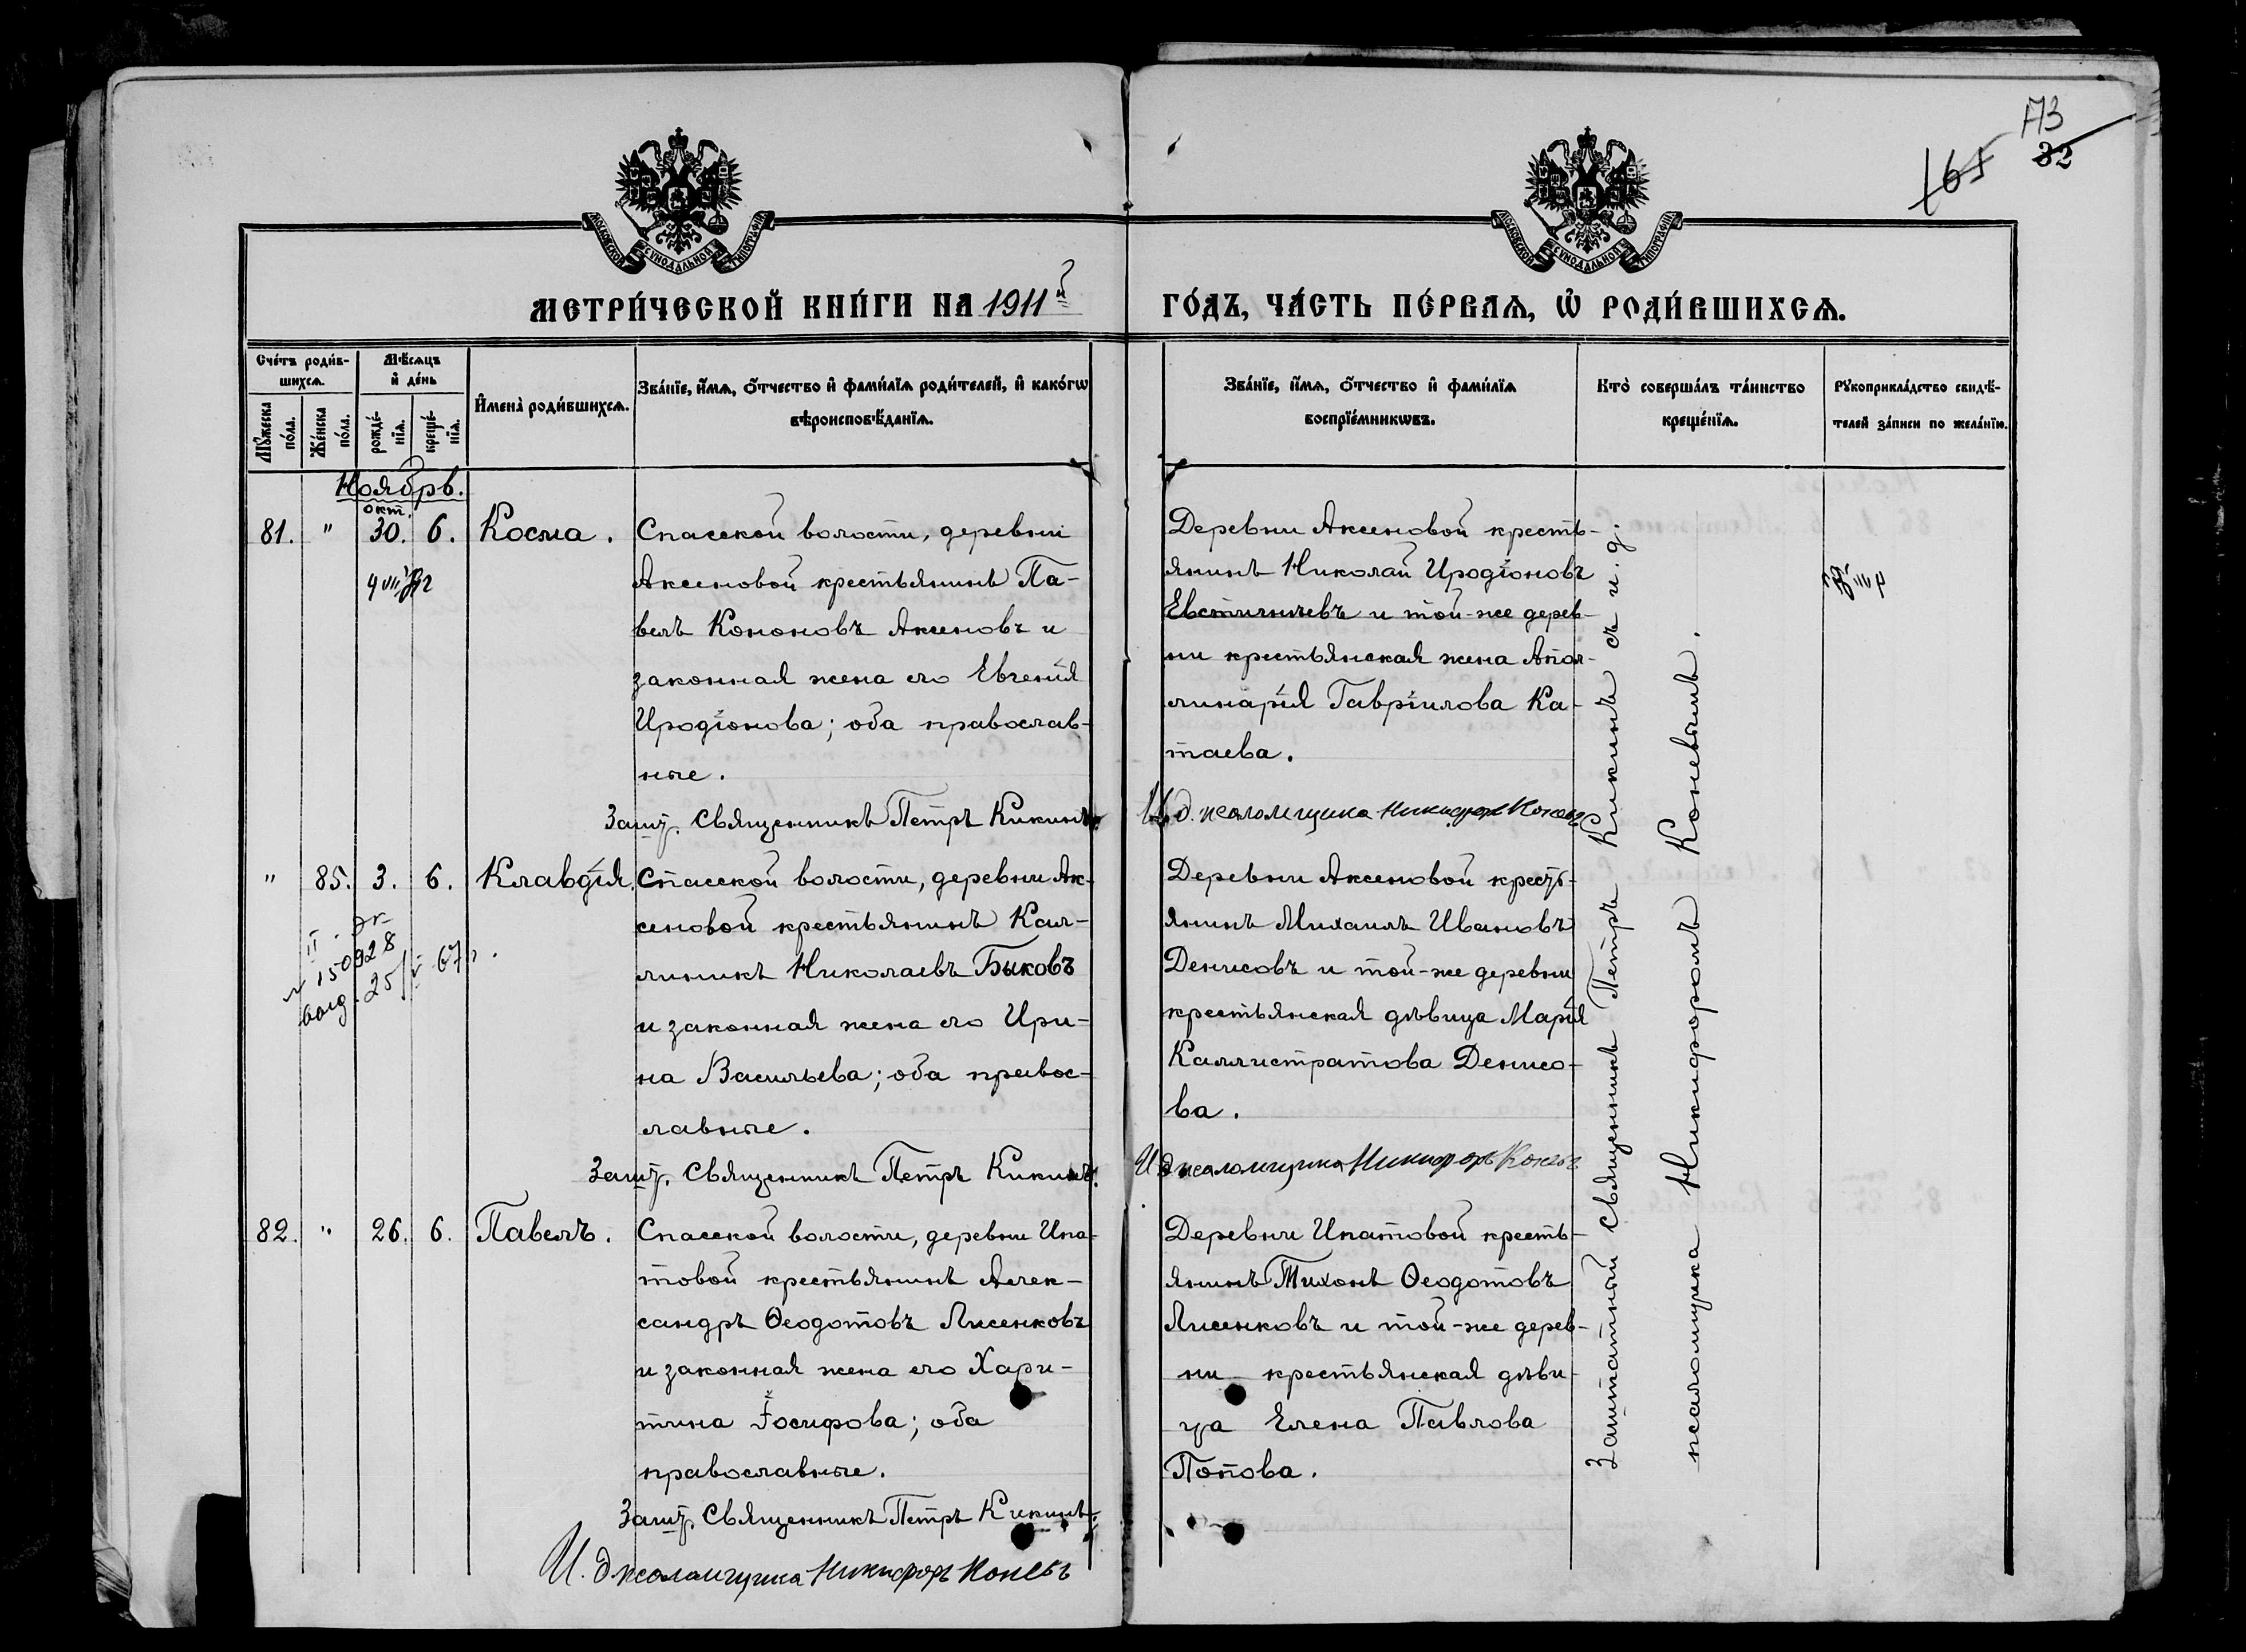 173
165 32
МОСКОВСКОЙ СѴНОДАЛЬНОЙ ТИПОГРАФІИ
МОСКОВСКОЙ СѴНОДАЛЬНОЙ ТИПОГРАФІИ
МЕТРИ́ЧЕСКОЙ КНИ́ГИ НА 1911й
ГО́ДЪ, ЧА́СТЬ ПЕ́РВАѦ, Ѡ҆ РОДИ́ВШИХСѦ.
Сче́тъ роди́в-
шихсѧ.
Мꙋ́жеска
по́ла.
Же́нска
по́ла.
Мѣ́сѧцъ
и҆ де́нь
рожде́-
нїѧ.
креще́-
нїѧ.
И҆мена̀ роди́вшихсѧ.
Зва́нїе, и҆́мѧ, ѻ҆́тчество и҆ фами́лїѧ роди́телей, и҆ како́гѡ
вѣроисповѣ́данїѧ.
Зва́нїе, и҆́мѧ, ѻ҆́тчество и҆ фами́лїѧ
воспрїе́мникѡвъ.
Кто̀ соверша́лъ та́инство
креще́нїѧ.
Рꙋкоприкла́дство свидѣ́-
телей за́писи по жела́нїю.
Ноябрь.
окт.
81. " 30. 6. Косма.
Спасской волости, деревни
Аксеновой крестьянинъ Па-
велъ Кононовъ Аксеновъ и
законная жена его Евгенія
Иродіонова; оба православ-
ные.
Зашт. Священникъ Петръ Кикинъ.
Деревни Аксеновой кресть-
янинъ Николай Иродіоновъ
Евстигнѣевъ и той-же дерев-
ни крестьянская жена Апол-
линарія Гавріилова Ка-
таева.
И. д. псаломщика Никифоръ Коневъ
" 85. 3. 6. Клавдія.
150928
выд. 25/V 67 г.
Спасской волости, деревни Ак-
сеновой крестьянинъ Кал-
линикъ Николаевъ Быковъ
и законная жена его Ири-
на Васильева; оба правос-
лавные.
Зашт. Священникъ Петръ Кикинъ.
Деревни Аксеновой кресть-
янинъ Михаилъ Ивановъ
Денисовъ и той-же деревни
крестьянская дѣвица Марія
Каллистратова Денисо-
ва.
И д псаломщика Никифоръ Коневъ
82. " 26. 6. Павелъ.
Спасской волости, деревни Ипа-
товой крестьянинъ Алек-
сандръ Ѳеодотовъ Лисенковъ
и законная жена его Хари-
тина Іосифова; оба
православные.
Зашт. Священникъ Петръ Кикинъ.
И. д. псаломщика Никифоръ Коневъ
Деревни Ипатовой кресть-
янинъ Тихонъ Ѳеодотовъ
Лисенковъ и той-же дерев-
ни крестьянская дѣви-
ца Елена Павлова
Попова.
Заштатный Священникъ Петръ Кикинъ съ и. д.
псаломщика Никифоромъ Коневымъ.